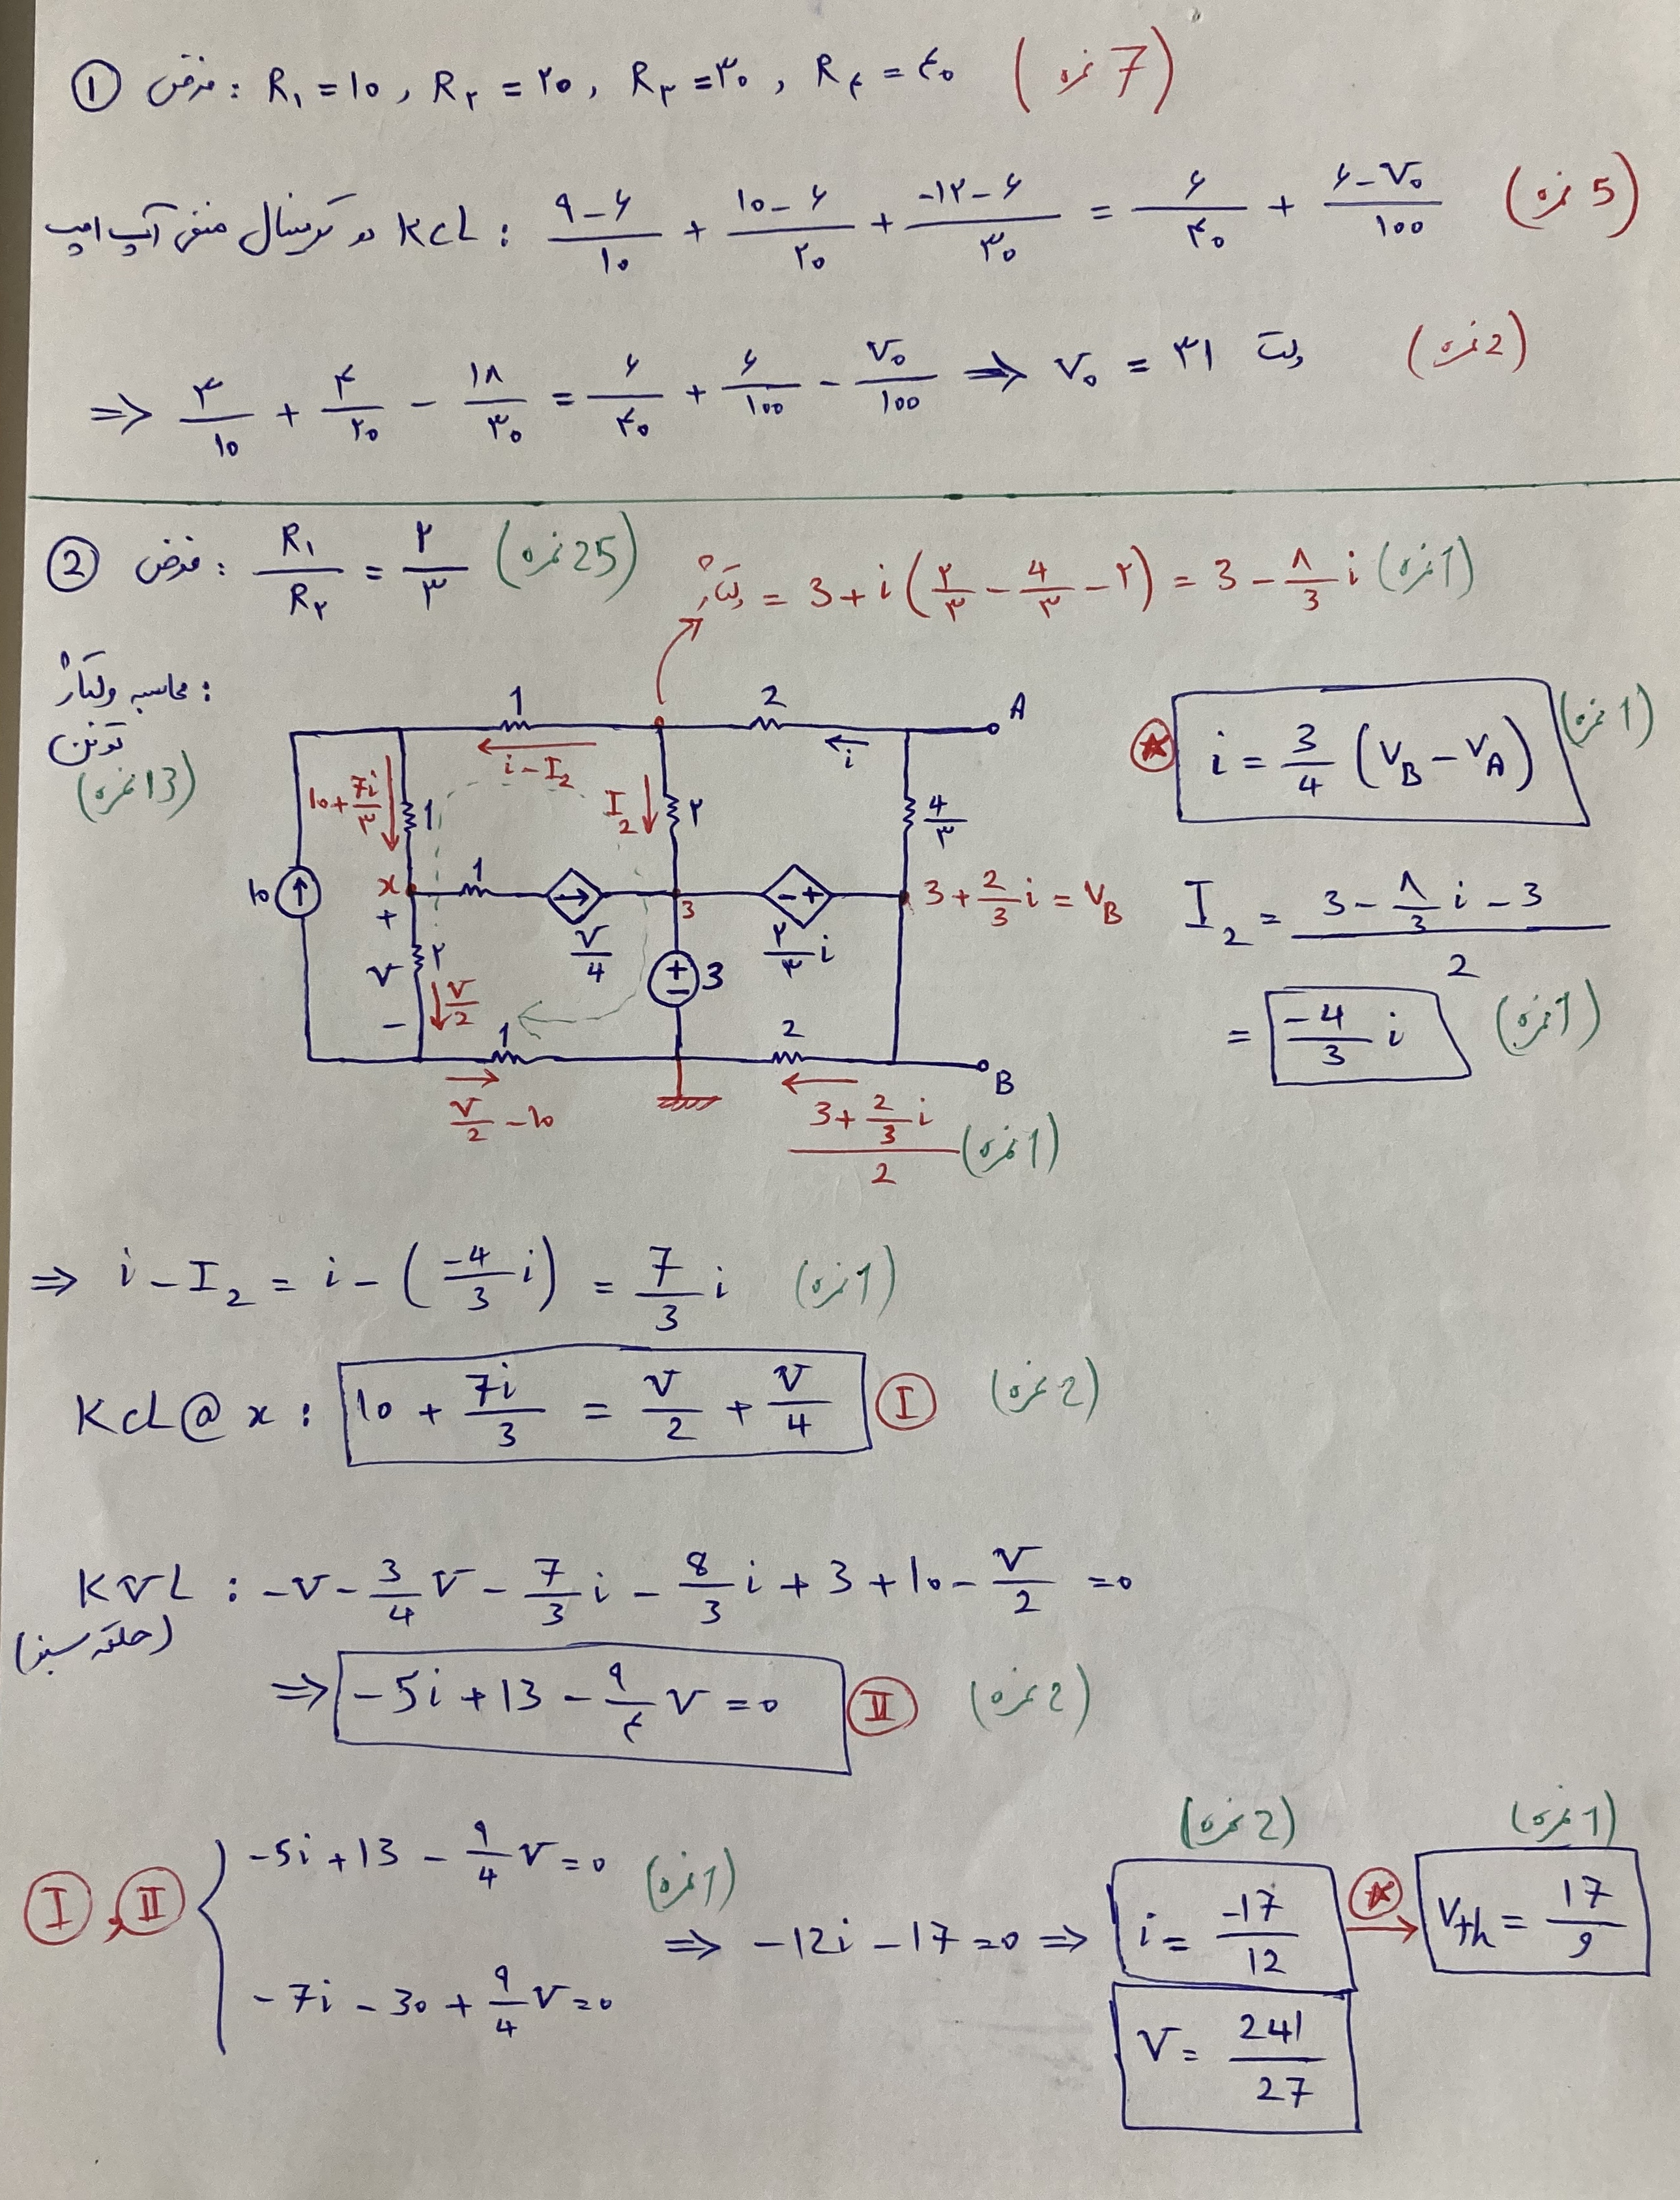 ① فرض : R۱ = ۱۰ , R۲ = ۲۰ , R۳ = ۳۰ , R۴ = ۴۰ (7 نمره)
KCL در ترمینال منفی آپ امپ : (۹-۶)/۱۰ + (۱۰-۶)/۲۰ + (-۱۲-۶)/۳۰ = ۶/۴۰ + (۶-V۰)/۱۰۰ (5 نمره)
⇒ ۳/۱۰ + ۴/۲۰ - ۱۸/۳۰ = ۶/۴۰ + ۶/۱۰۰ - V۰/۱۰۰ ⇒ V۰ = ۳۱ ولت (2 نمره)
② فرض : R۱/R۲ = ۲/۳ (25 نمره)
ولتاژ = 3 + i(۲/۳ - 4/۳ - ۲) = 3 - ۸/3 i (1 نمره)
محاسبه ولتاژ تونن :
(13 نمره)
1 2 A
i - I2 i
10 + 7i/۳ 1 I2 ۲ 4/۳
⊛ i = 3/4 (VB - VA) (1 نمره)
10 x 1 3 3 + 2/3 i = VB
+ v - ۲ v/2 v/4 3 ۲/۳ i
I2 = (3 - ۸/3 i - 3)/2
= -4/3 i (1 نمره)
1 2 B
v/2 - 10 (3 + 2/3 i)/2 (1 نمره)
⇒ i - I2 = i - (-4/3 i) = 7/3 i (1 نمره)
KCL@x : 10 + 7i/3 = v/2 + v/4 Ⓘ (2 نمره)
KVL : -v - 3/4 v - 7/3 i - 8/3 i + 3 + 10 - v/2 = 0
(حلقه سبز)
⇒ -5i + 13 - ۹/۴ v = 0 Ⅱ (2 نمره)
I , Ⅱ { -5i + 13 - ۹/4 v = 0 (1 نمره)
-7i - 30 + ۹/4 v = 0
⇒ -12i - 17 = 0 ⇒ i = -17/12 (2 نمره) ⊛ → Vth = 17/9 (1 نمره)
V = 241/27